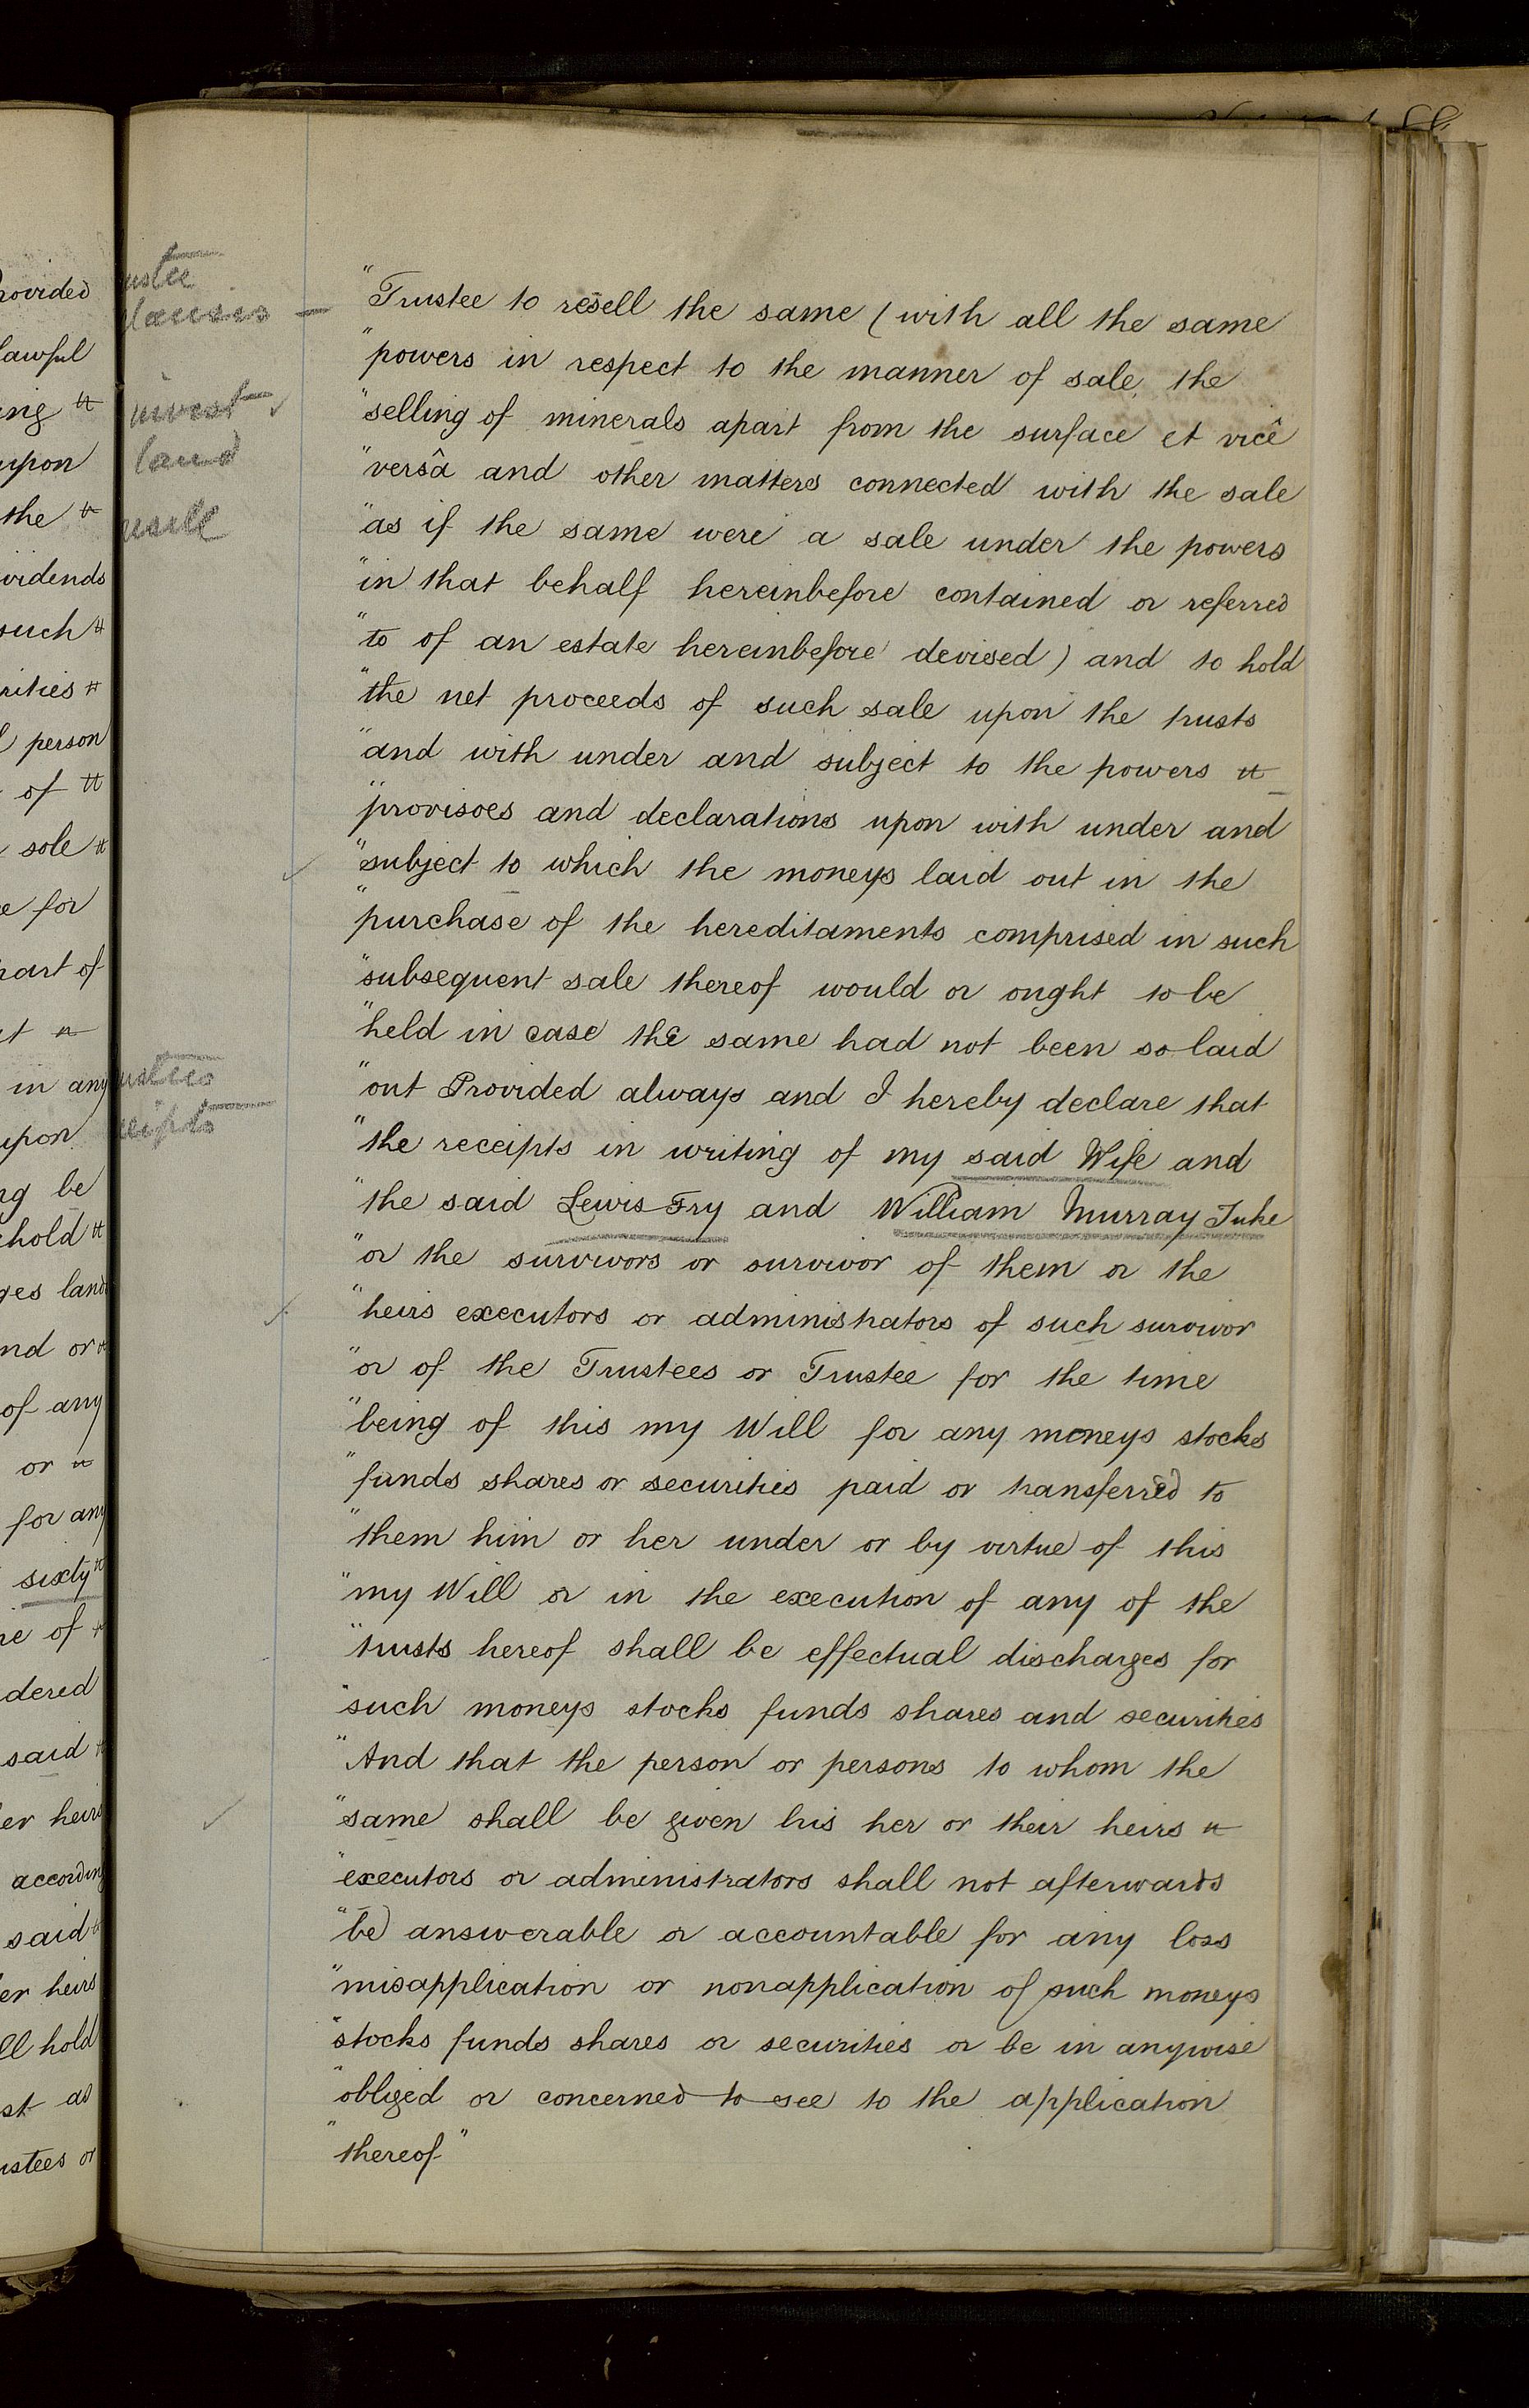 rovided
lawful
ing
upon
the
vidends
such
rities
person
of
sole
for
part of
in any
upon
be
hold
land
nd or
of any
or
for any
sixty
of
dered
said
er heirs
according
said
er heirs
ll hold
st as
ustees or
ustee
lauses
invest
land
resell
ustees
ceipts
"Trustee to resell the same (with all the same
"powers in respect to the manner of sale, the
"selling of minerals apart from the surface et vicê
"versâ and other matters connected with the sale
"as if the same were a sale under the powers
"in that behalf hereinbefore contained or referred
"to of an estate hereinbefore devised) and to hold
"the net proceeds of such sale upon the trusts
"and with under and subject to the powers
"provisoes and declarations upon with under and
"subject to which the moneys laid out in the
"purchase of the hereditaments comprised in such
"subsequent sale thereof would or ought to be
"held in case the same had not been so laid
"out Provided always and I hereby declare that
"the receipts in writing of my said Wife and
"the said Lewis Fry and William Murray Tuke
"or the survivors or survivor of them or the
"heirs executors or administrators of such survivor
"or of the Trustees or Trustee for the time
"being of this my Will for any moneys stocks
"funds shares or securities paid or transferred to
"them him or her under or by virtue of this
"my Will or in the execution of any of the
"trusts hereof shall be effectual discharges for
"such moneys stocks funds shares and securities
"And that the person or persons to whom the
"same shall be given his her or their heirs
"executors or administrators shall not afterwards
"be answerable or accountable for any loss
"misapplication or nonapplication of such moneys
"stocks funds shares or securities or be in anywise
"obliged or concerned to see to the application
"thereof"